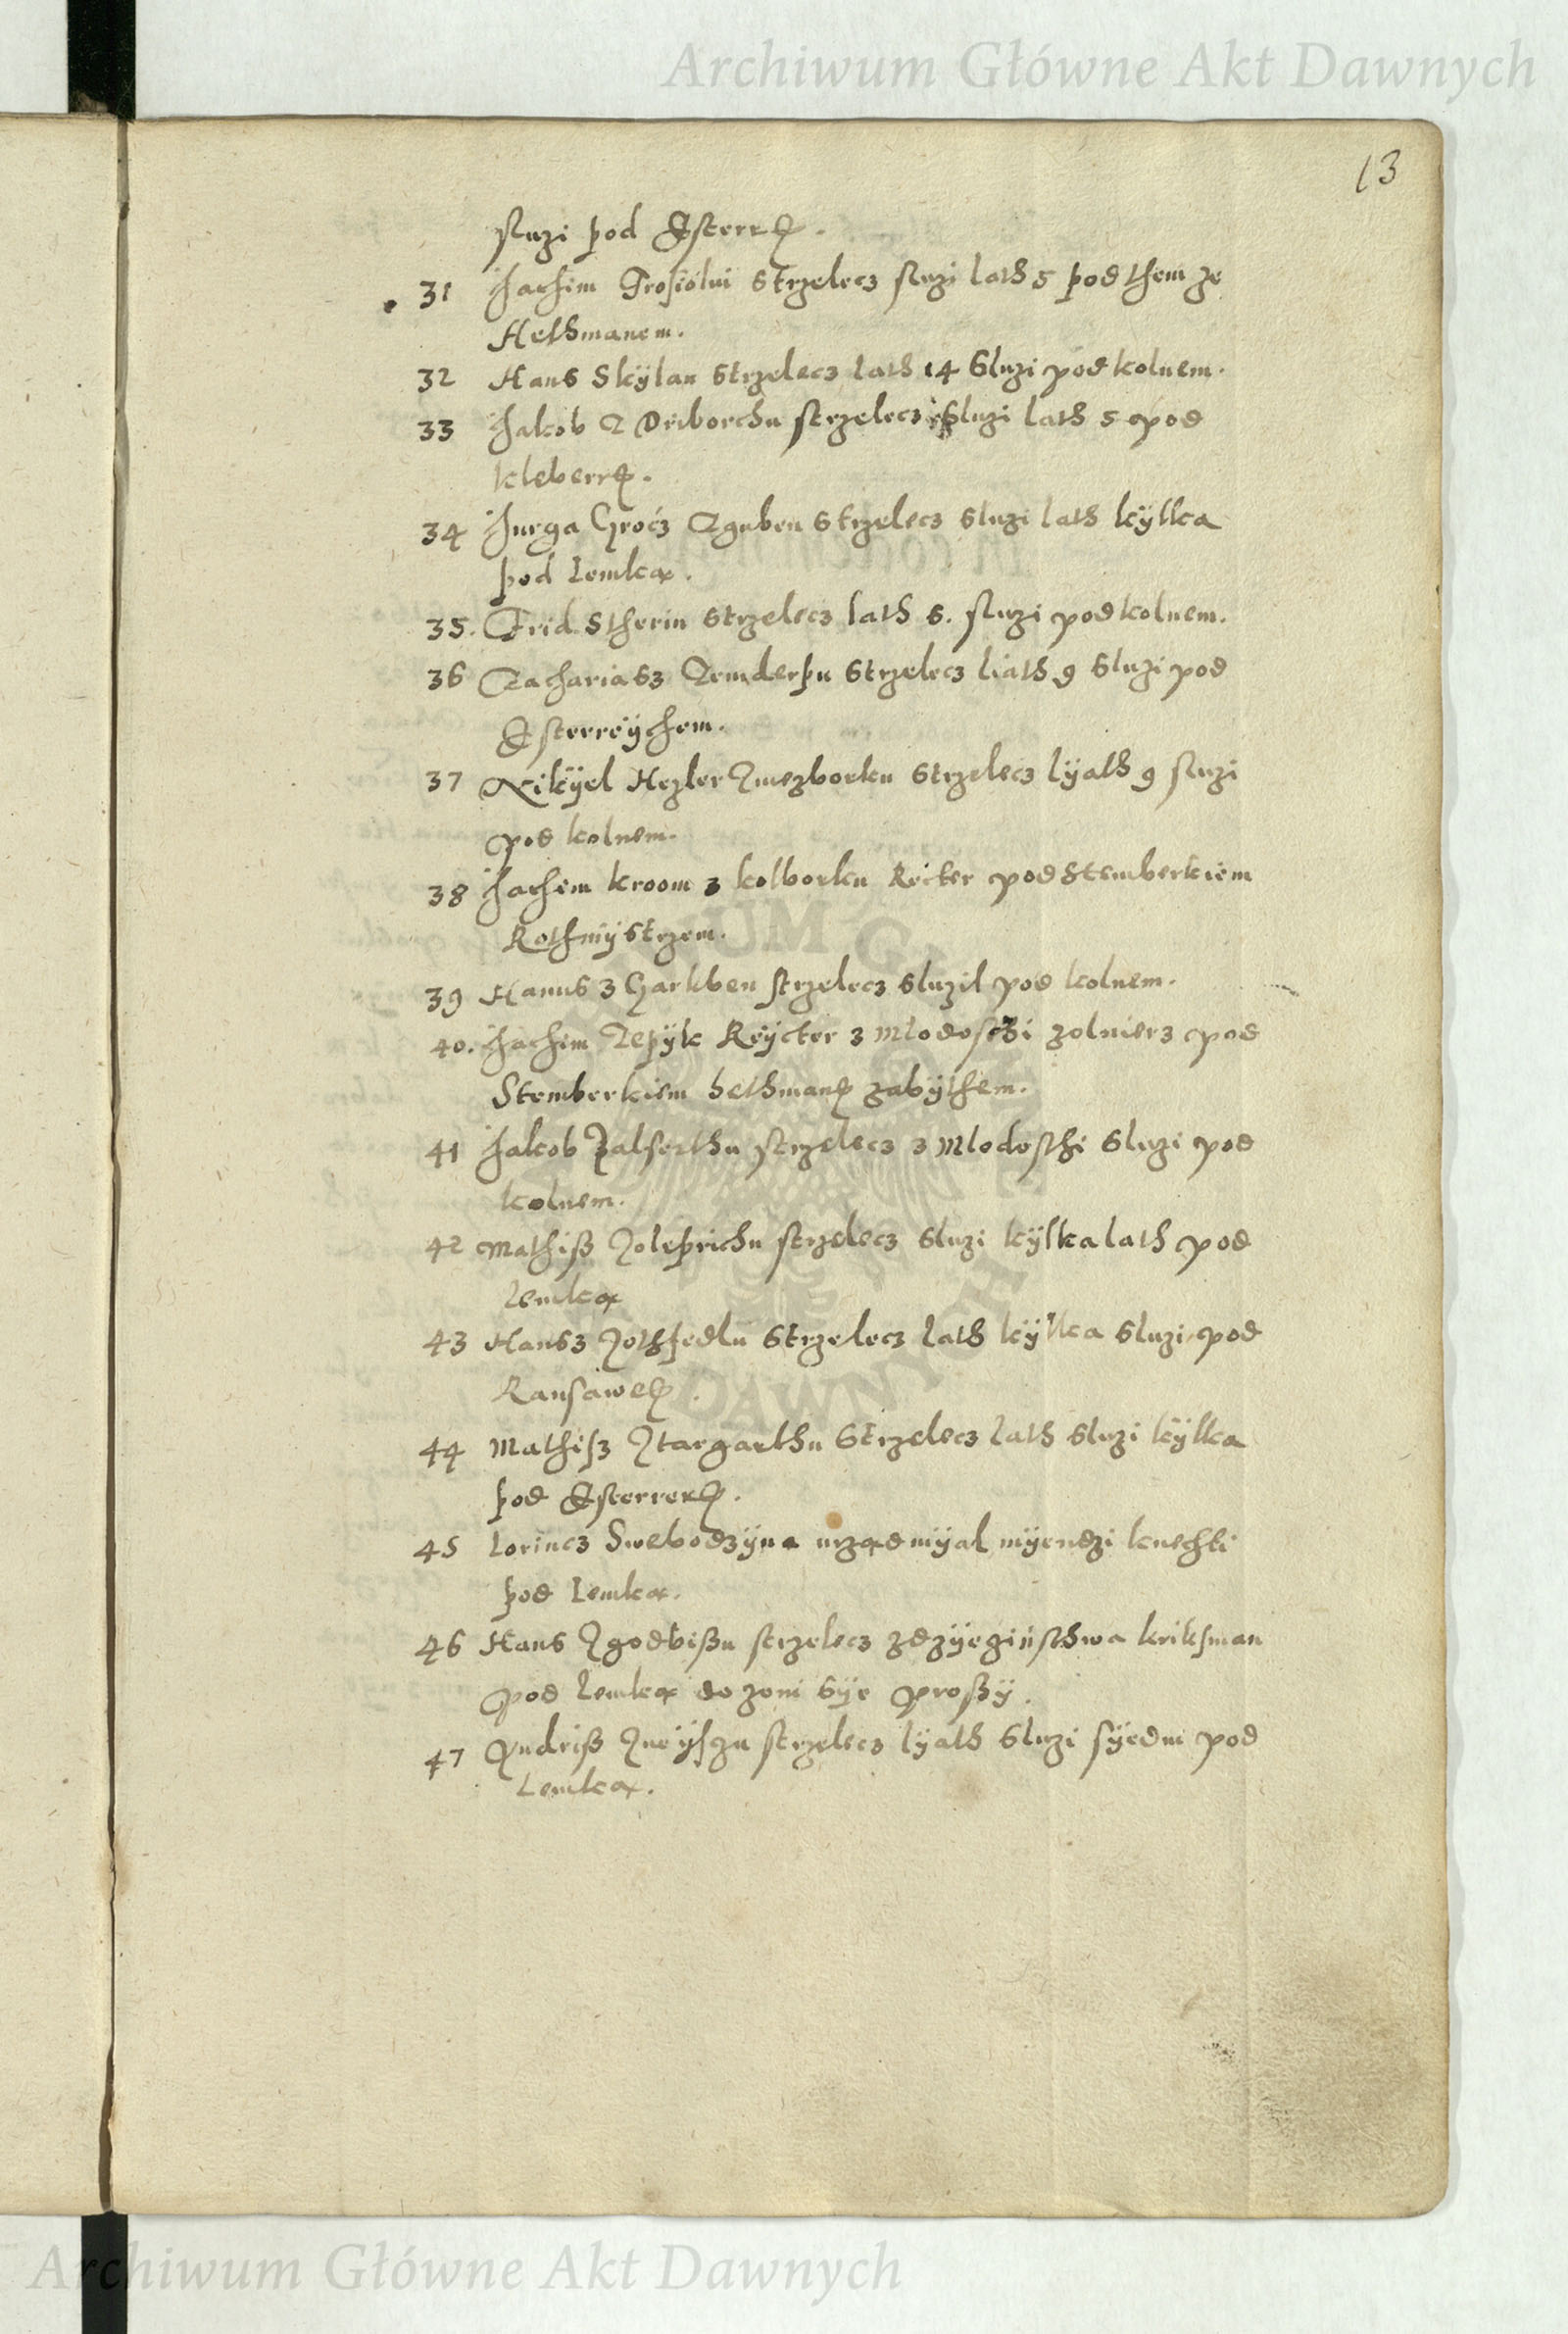 Archiwum Główne Akt Dawnych
13
sluzi pod Esterre.
31 Jachim Frosiólui Strzelecz sluzi lath 5 pod them ze
Hethmanem.
32 Hans Skÿlan Strzelecz lath 14 Sluzi pod kolnem.
33 Jakob Z Driborchu strzelecz Sluzi lath 5 pod
kleberre.
34 Jurga Grocz Zguben Strzelecz sluzi lath kÿlka
pod Lemką.
35. Frid Stherin Strzelecz lath 6. sluzi pod kolnem.
36 Zachariasz Zemderpu Strzelecz liath 9 Sluzi pod
Esterreÿchem.
37 Nikÿel Hezler Zmezborku Strzelecz lÿath 9 sluzi
pod kolnem.
38 Jachim kroom z kolborku Reiter pod Stemberkiem
Rothmÿstrzem.
39 Hanus z Garkben strzelecz sluzil pod kolnem.
40. Jachim Zepÿk Reÿcter z mlodosczi zolnierz pod
Stemberkiem hethmane zabÿthem.
41 Jakob Zalserthu strzelecz z Mlodosthi Sluzi pod
kolnem.
42 Mathiß Zoleprichu strzelecz Sluzi kÿlka lath pod
Lemką
43 Hansz Zothsedlu Strzelecz lath kÿlka Sluzi pod
Ransawe.
44 Mathisz Ztargarthu Strzelecz lath Sluzi kÿlka
pod Esterrere.
45 Lorincz Swebodzÿna urząd mÿal mÿendzi knechti
pod Lemką.
46 Hans Zgodbißu strzelecz zdzÿeginsthwa kriksman
pod Lemką do zoni Sÿe proßÿ.
47 Andriß Zneÿszu strzelecz lÿath Sluzi sÿedm pod
Lemką.
Archiwum Główne Akt Dawnych